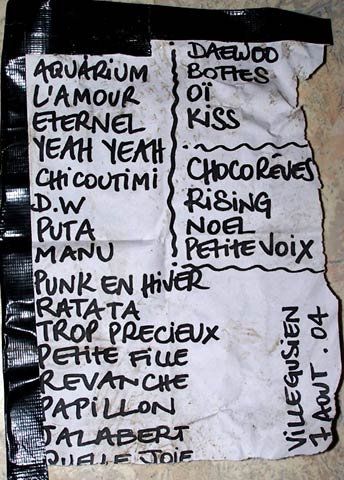 AQUARIUM
L'AMOUR
ETERNEL
YEAH YEAH
CHICOUTIMI
D.W
PUTA
MANU
PUNK EN HIVER
RATATA
TROP PRECIEUX
PETITE FILLE
REVANCHE
PAPILLON
JALABERT
QUELLE JOIE
DAEWOO
BOTTES
OÏ
KISS
CHOCORÊVES
RISING
NOEL
PETITE VOIX
VILLEGUSIEN
7 AOUT . 04